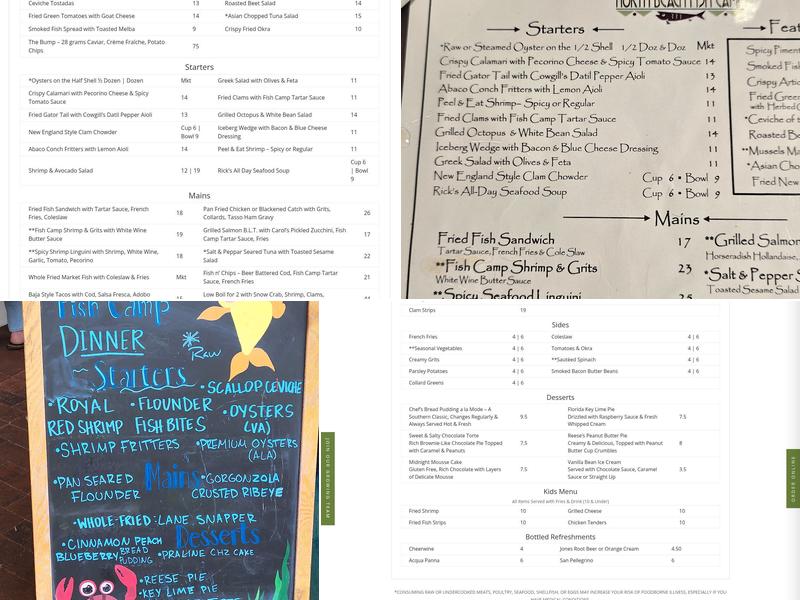 Ceviche Tostadas 13 Roasted Beet Salad 14
Fried Green Tomatoes with Goat Cheese 14 *Asian Chopped Tuna Salad 15
Smoked Fish Spread with Toasted Melba 9 Crispy Fried Okra 10
The Bump – 28 grams Caviar, Crème Fraîche, Potato
Chips 75
Starters
*Oysters on the Half Shell ½ Dozen | Dozen Mkt Greek Salad with Olives & Feta 11
Crispy Calamari with Pecorino Cheese & Spicy
Tomato Sauce 14 Fried Clams with Fish Camp Tartar Sauce 11
Fried Gator Tail with Cowgill's Datil Pepper Aioli 13 Grilled Octopus & White Bean Salad 14
New England Style Clam Chowder Cup 6 |
Bowl 9 Iceberg Wedge with Bacon & Blue Cheese
Dressing 11
Abaco Conch Fritters with Lemon Aioli 14 Peel & Eat Shrimp – Spicy or Regular 11
Shrimp & Avocado Salad 12 | 19 Rick's All Day Seafood Soup Cup 6
| Bowl
9
Mains
Fried Fish Sandwich with Tartar Sauce, French
Fries, Coleslaw 18 Pan Fried Chicken or Blackened Catch with Grits,
Collards, Tasso Ham Gravy 26
**Fish Camp Shrimp & Grits with White Wine
Butter Sauce 19 Grilled Salmon B.L.T. with Carol's Pickled Zucchini, Fish
Camp Tartar Sauce, Fries 17
**Spicy Shrimp Linguini with Shrimp, White Wine,
Garlic, Tomato, Pecorino 18 *Salt & Peppar Seared Tuna with Toasted Sesame
Salad 22
Whole Fried Market Fish with Coleslaw & Fries Mkt Fish n' Chips - Beer Battered Cod, Fish Camp Tartar
Sauce, French Fries 21
Baja Style Tacos with Cod, Salsa Fresca, Adobo Low Boil for 2 with Snow Crab, Shrimp, Clams,
NORTH BEACH FISH CAMP
Starters
*Raw or Steamed Oyster on the 1/2 Shell 1/2 Doz & Doz Mkt
Crispy Calamari with Pecorino Cheese & Spicy Tomato Sauce 14
Fried Gator Tail with Cowgill's Datil Pepper Aioli 13
Abaco Conch Fritters with Lemon Aioli 14
Peel & Eat Shrimp~ Spicy or Regular 11
Fried Clams with Fish Camp Tartar Sauce 11
Grilled Octopus & White Bean Salad 14
Iceberg Wedge with Bacon & Blue Cheese Dressing 11
Greek Salad with Olives & Feta 11
New England Style Clam Chowder Cup 6 • Bowl 9
Rick's All-Day Seafood Soup Cup 6 • Bowl 9
Feat
Spicy Pimen
Smoked Fis
Crispy Artic
Fried Green
with Herbed
*Ceviche of t
Roasted B
**Mussels Ma
*Asian Cho
Fried New
Mains
Fried Fish Sandwich 17
Tartar Sauce, French Fries & Cole Slaw
**Fish Camp Shrimp & Grits 23
White Wine Butter Sauce
**Spicy Seafood Linguini 25
**Grilled Salmon
Horseradish Hollandaise,
*Salt & Pepper S
Toasted Sesame Salad
Fish Camp
DINNER
* Raw
~ Starters
• SCALLOP CEVICHE
• ROYAL
RED SHRIMP
• FLOUNDER
FISH BITES
• OYSTERS
(VA)
• SHRIMP FRITTERS
• PREMIUM OYSTERS
(ALA)
Mains
• PAN SEARED
FLOUNDER
• GORGONZOLA
CRUSTED RIBEYE
• WHOLE-FRIED: LANE SNAPPER
Desserts
• CINNAMON PEACH
BLUEBERRY BREAD
PUDDING
• PRALINE CHZ CAKE
• REESE PIE
• KEY LIME PIE
JOIN OUR GROWING TEAM
Clam Strips 19
Sides
French Fries 4 | 6 Coleslaw 4 | 6
**Seasonal Vegetables 4 | 6 Tomatoes & Okra 4 | 6
Creamy Grits 4 | 6 **Sautéed Spinach 4 | 6
Parsley Potatoes 4 | 6 Smoked Bacon Butter Beans 4 | 6
Collard Greens 4 | 6
Desserts
Chef's Bread Pudding a la Mode – A
Southern Classic, Changes Regularly &
Always Served Hot & Fresh 9.5
Florida Key Lime Pie
Drizzled with Raspberry Sauce & Fresh
Whipped Cream 7.5
Sweet & Salty Chocolate Torte
Rich Brownie-Like Chocolate Pie Topped
with Caramel & Peanuts 7.5
Reese's Peanut Butter Pie
Creamy & Delicious, Topped with Peanut
Butter Cup Crumbles 8
Midnight Mousse Cake
Gluten Free, Rich Chocolate with Layers
of Delicate Mousse 7.5
Vanilla Bean Ice Cream
Served with Chocolate Sauce, Caramel
Sauce or Straight Up 3.5
Kids Menu
All Items Served with Fries & Drink (10 & Under)
Fried Shrimp 10 Grilled Cheese 10
Fried Fish Strips 10 Chicken Tenders 10
Bottled Refreshments
Cheerwine 4 Jones Root Beer or Orange Cream 4.50
Acqua Panna 6 San Pellegrino 6
*CONSUMING RAW OR UNDERCOOKED MEATS, POULTRY, SEAFOOD, SHELLFISH, OR EGGS MAY INCREASE YOUR RISK OF FOODBORNE ILLNESS, ESPECIALLY IF YOU
HAVE MEDICAL CONDITIONS